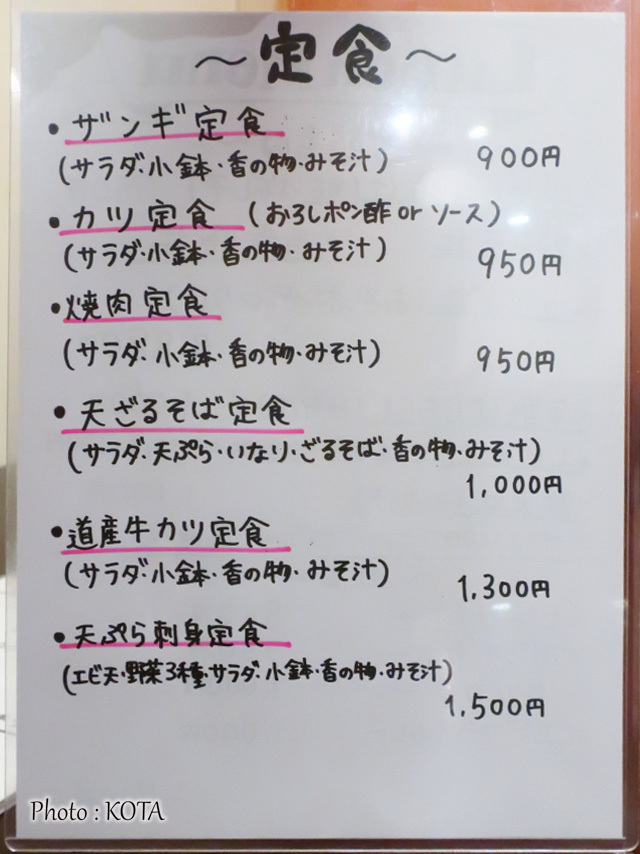 ～定食～
・ザンギ定食
(サラダ・小鉢・香の物・みそ汁) 900円
・カツ定食 (おろしポン酢 or ソース)
(サラダ・小鉢・香の物・みそ汁) 950円
・焼肉定食
(サラダ・小鉢・香の物・みそ汁) 950円
・天ざるそば定食
(サラダ・天ぷら・いなり・ざるそば・香の物・みそ汁)
1,000円
・道産牛カツ定食
(サラダ・小鉢・香の物・みそ汁) 1,300円
・天ぷら刺身定食
(エビ天・野菜3種・サラダ・小鉢・香の物・みそ汁)
1,500円
Photo : KOTA